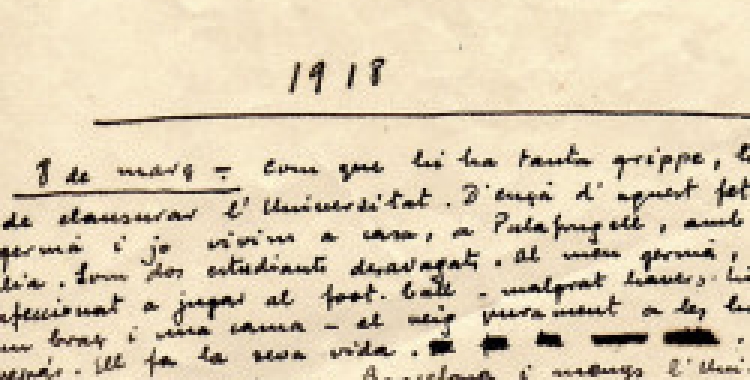 1918
8 de març - Com que hi ha tanta grippe, 
de clausurar l'Universitat. D'ençà d'aquest fet
germà i jo vivim a casa, a Palafrugell, amb
Som dos estudiants desvagats. Al meu germà,
afeccionat a jugar al foot-ball - malgrat havers-
braç i una cama - el veig purament a les
Ell fa la seva vida.
Barcelona i menys l'Uni